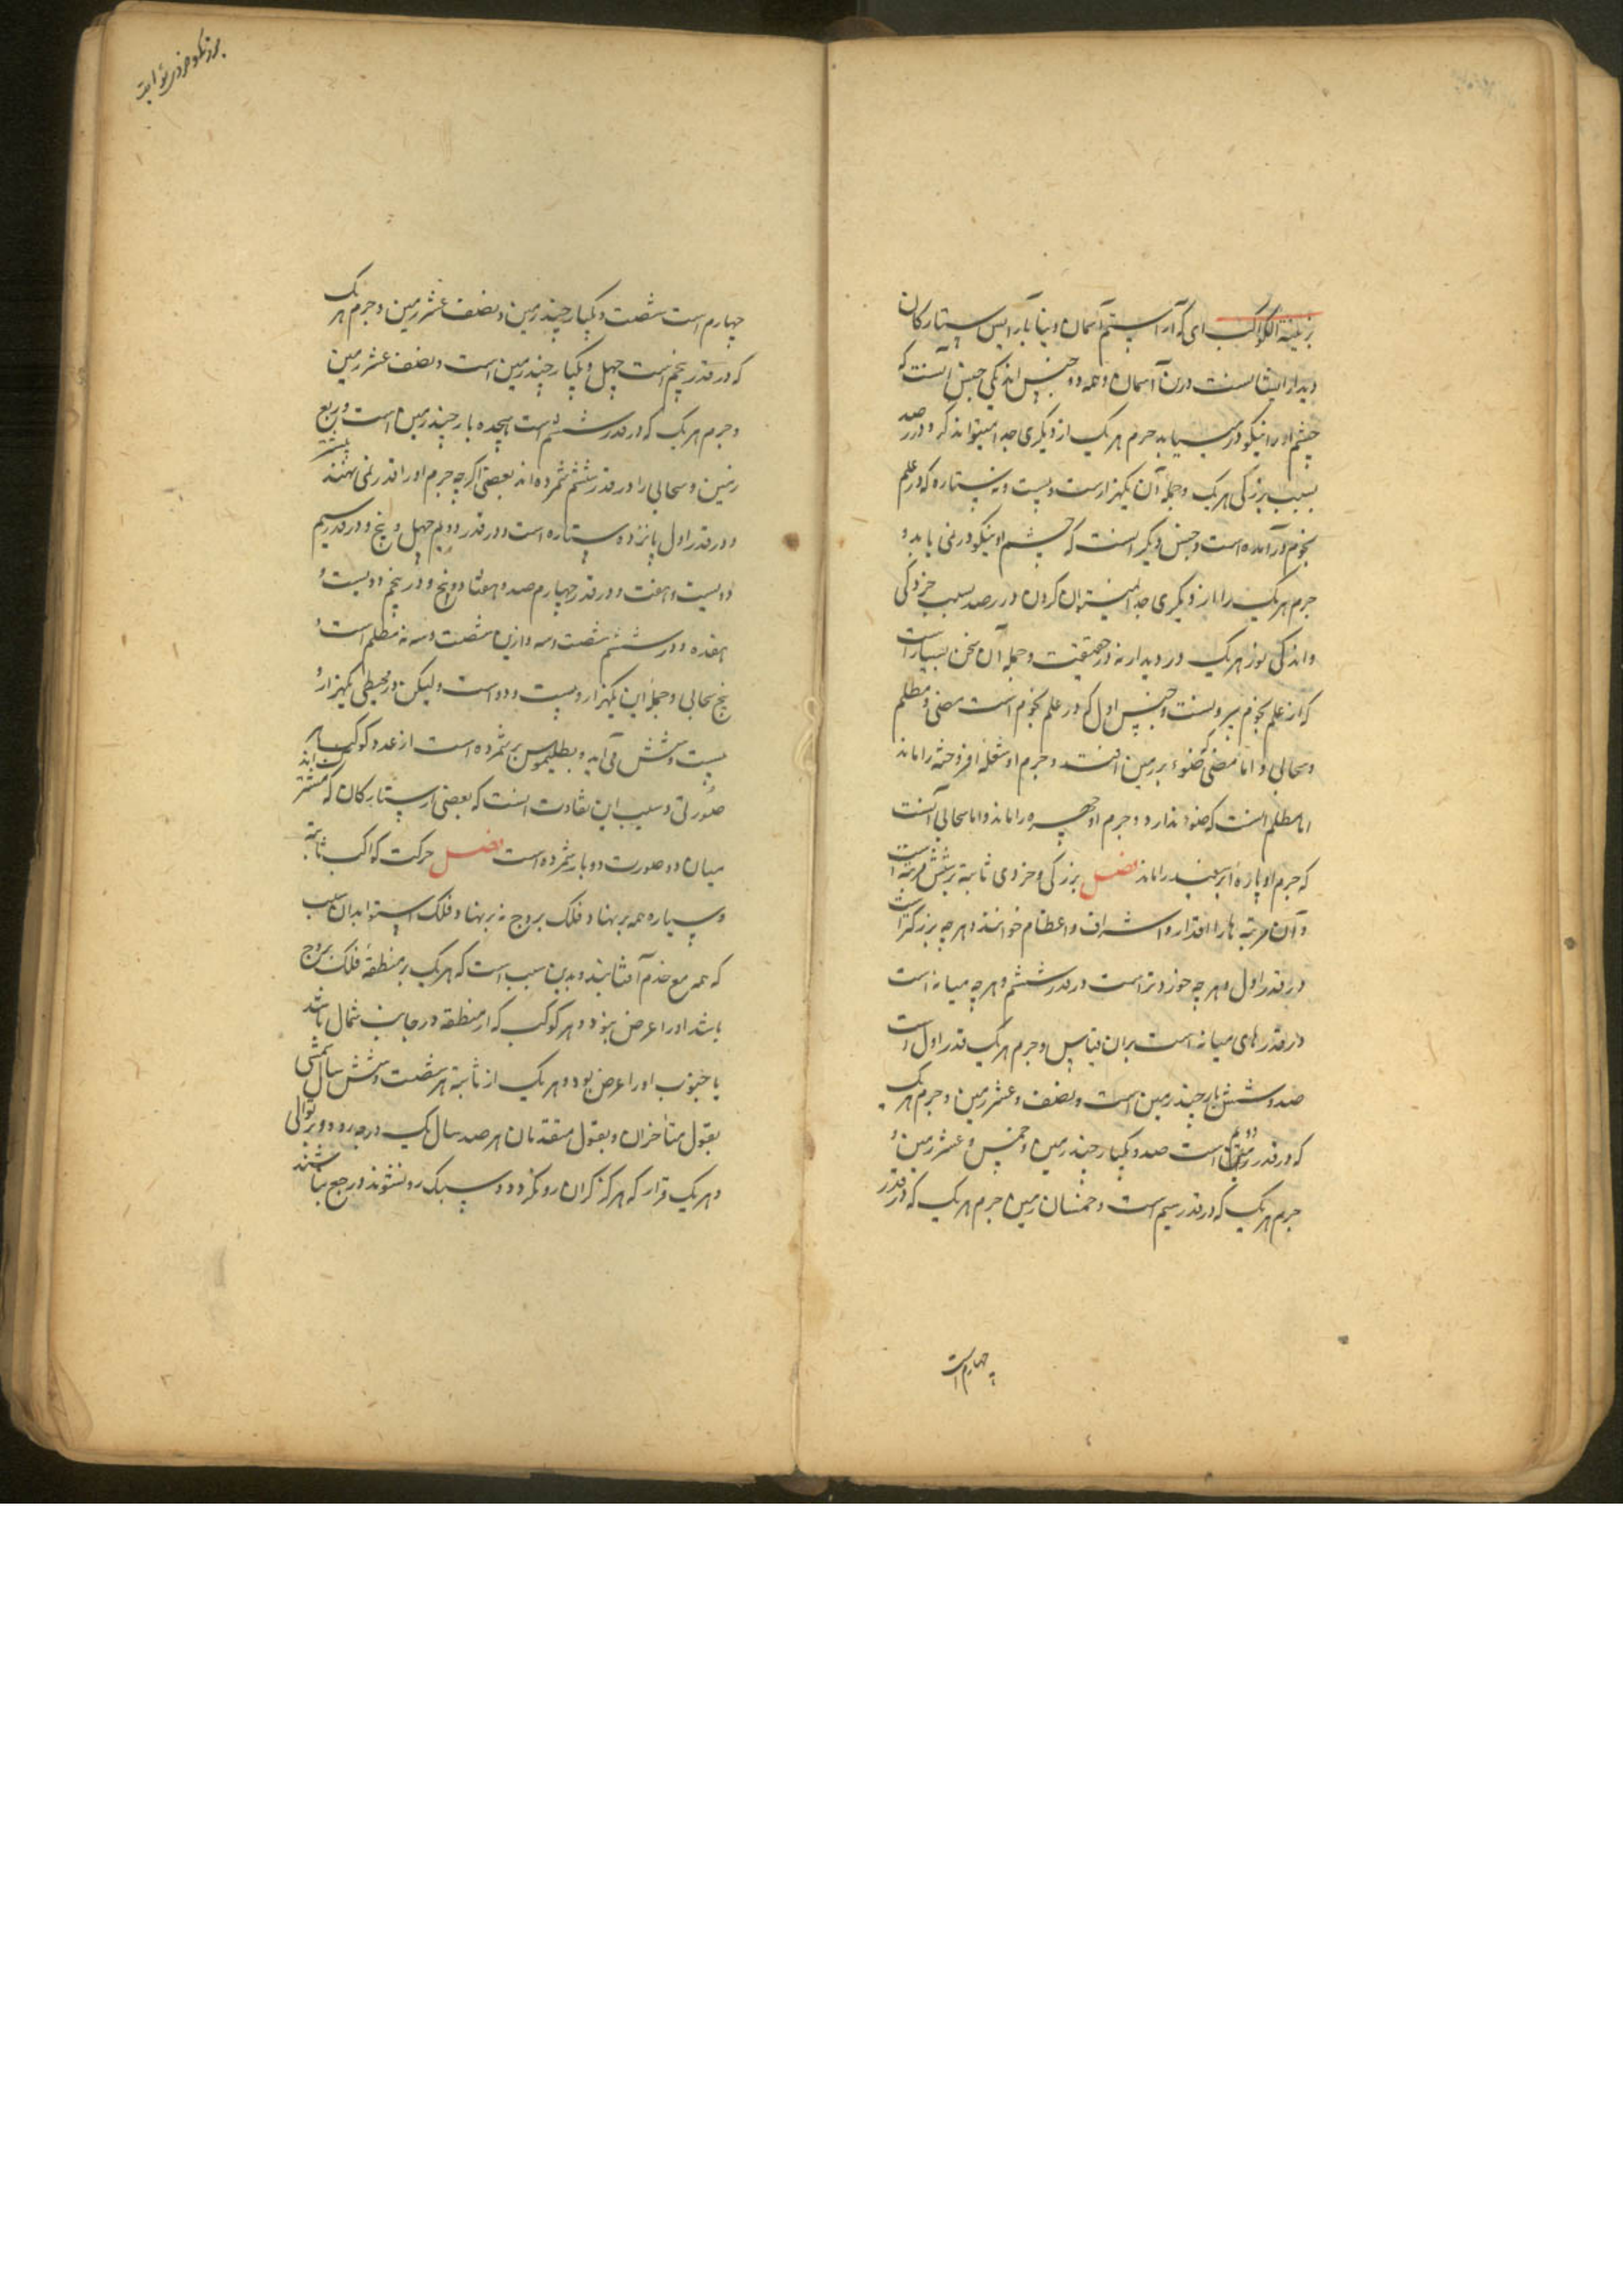 بزینة الکواکب ای که آراستیم آسمان دنیا بآرایش ستارکان
دیدار ایشانست درین آسمان و همه دو جنس اند یکی جنس آنست که
چشم او را نیکو درمییابد جرم هر یک از دیکری جدا میتواند کرد در رصد
بسبب بزرکی هر یک و جمله آن یکهزارست و بیست و نه ستاره که در علم
نجوم درآمده است و جنس دیکر آنست که چشم او نیکو درنمی یابد و
جرم هر یک را از دیکری جدا نمیتوان کردن در رصد بسبب خردکی
و اندکی نور هر یک در دیدار نه در حقیقت و جمله آن سخن بسیار است
که از علم نجوم بیرونست و جنس اول که در علم نجوم است مضی و مظلم
و سحابی و اما مضی که ضوء بر زمین افتد و جرم او شعله افروخته را ماند
اما مظلم آنست که ضوء ندارد و جرم او چهره را ماند و اما سحابی آنست
که جرم او پاره ابر سپید را ماند فصل بزرکی و خردی ثابته بر شش مرتبه است
و آن مرتبه ها را اقدار و اشراف و اعظام خوانند و هر چه بزرکتر است
در قدر اول و هر چه خوردتر است در قدر ششم و هر چه میانه است
در قدرهای میانه است بر آن قیاس و جرم هر یک قدر اول است
صد و شش بار چند زمین است و نصف و عشر زمین و جرم هر یک
که در قدر دویم است صد و یکبار چند زمین و خمس و عشر زمین و
جرم هر یک که در قدر سیم است و خمسان زمین جرم هر یک که در قدر
چهارم است
چهارم است شصت و یکبار چند زمین و نصف عشر زمین و جرم هر یک
که در قدر پنجم است چهل و یکبار چند زمین است و نصف عشر زمین
و جرم هر یک که در قدر ششم است هجده بار چند زمین است و ربع
زمین و سحابی را در قدر ششم شمرده اند بعضی اکرچه جرم او را قدر نمی نهند
و در قدر اول پانزده ستاره است و در قدر دویم چهل و پنج و در قدر سیم
دویست و هفت و در قدر چهارم صد و هفتاد و پنج و در پنجم دویست و
هفده و در ششم شصت و سه و ازین شصت و سه نه مظلم است و
پنج سحابی و جمله این یکهزار و بیست و دو است ولیکن در مجسطی یکهزار و
بیست و شش می آید و بطلیموس بر شمرده است از عدد کوکب هر
صورتی و سبب این تفاوت آنست که بعضی از ستارکان که مشترک اند
میان دو صورت دو بار شمرده است فصل حرکت کواکب ثابته
و سیاره همه بر پهناء فلک بروج نه بر پهناء فلک استوا بدان سبب
که همه مع خدم آفتابند و بدین سبب است که هر یک بر منطقه فلک بروج
باشد او را عرض نبود و هر کوکب که از منطقه در جانب شمال باشد
یا جنوب او را عرض بود و هر یک از ثابته هر شصت و شش سال شمسی
بقول متأخران و بقول متقدمان هر صد سال یک درجه رود و بر توالی
و هر یک قرار که هرکز کران رو نکردد و سبک رو نشوند و رجع نباشند